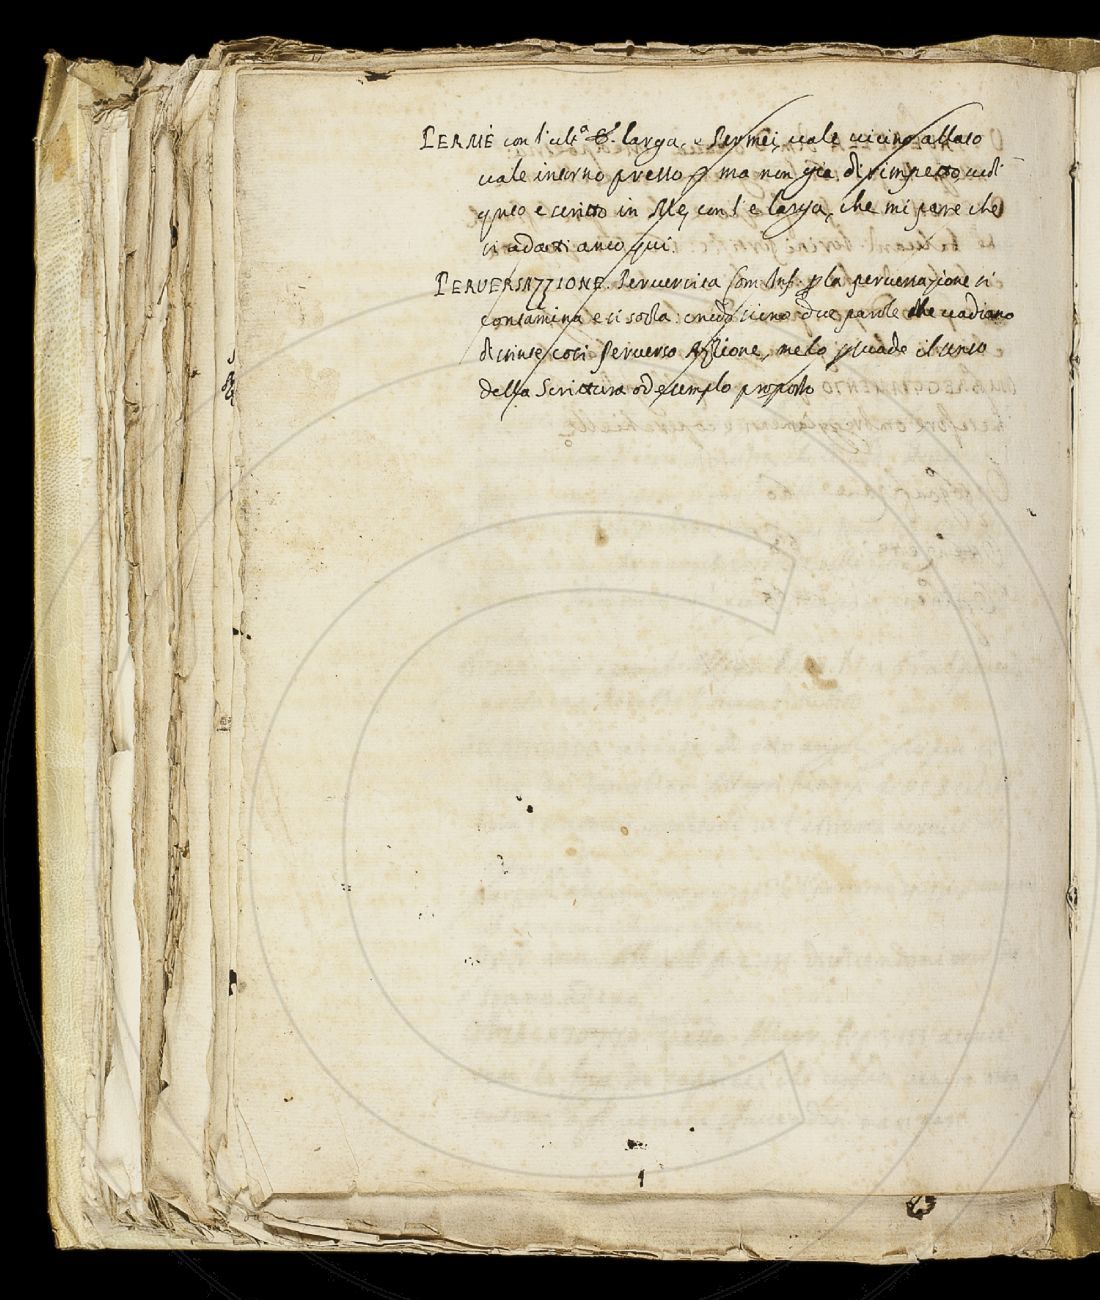 PERMÈ con l'ult.ª E. larga, e Permei, vale vicino allato
vale intorno presso ma non già dirimpetto vedi
queo e scritto in Me, con l'e larga, che mi pare che
si adatti anco qui.
PERVERSAZZIONE. Perversita Com. Inf. p la perversazione si
contamina e si solla: credo sieno due parole che vadiano
divise cosi Perverso Azzione, me lo psuade il senso
della Scrittura od esemplo proposto